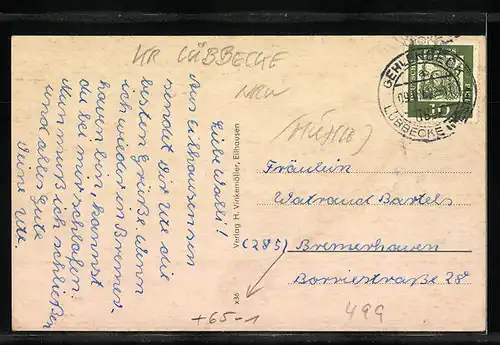 KR LÜBBECKE
NRW
(MÜHLE)
Liebe Walli!
Aus Eilhausen
sendet Dir Ute die
besten Grüße. Wenn
ich wieder in Bremer-
haven bin, kannst
du bei mir schlafen.
Nun muß ich schließen
und alles Gute
Deine Ute.
Verlag H. Vinkemöller, Eilhausen
x36
GEHLENBECK
LÜBBECKE
Fräulein
Waltraud Bartels
(285) Bremerhaven
Borriesstraße 28
499
+65-1